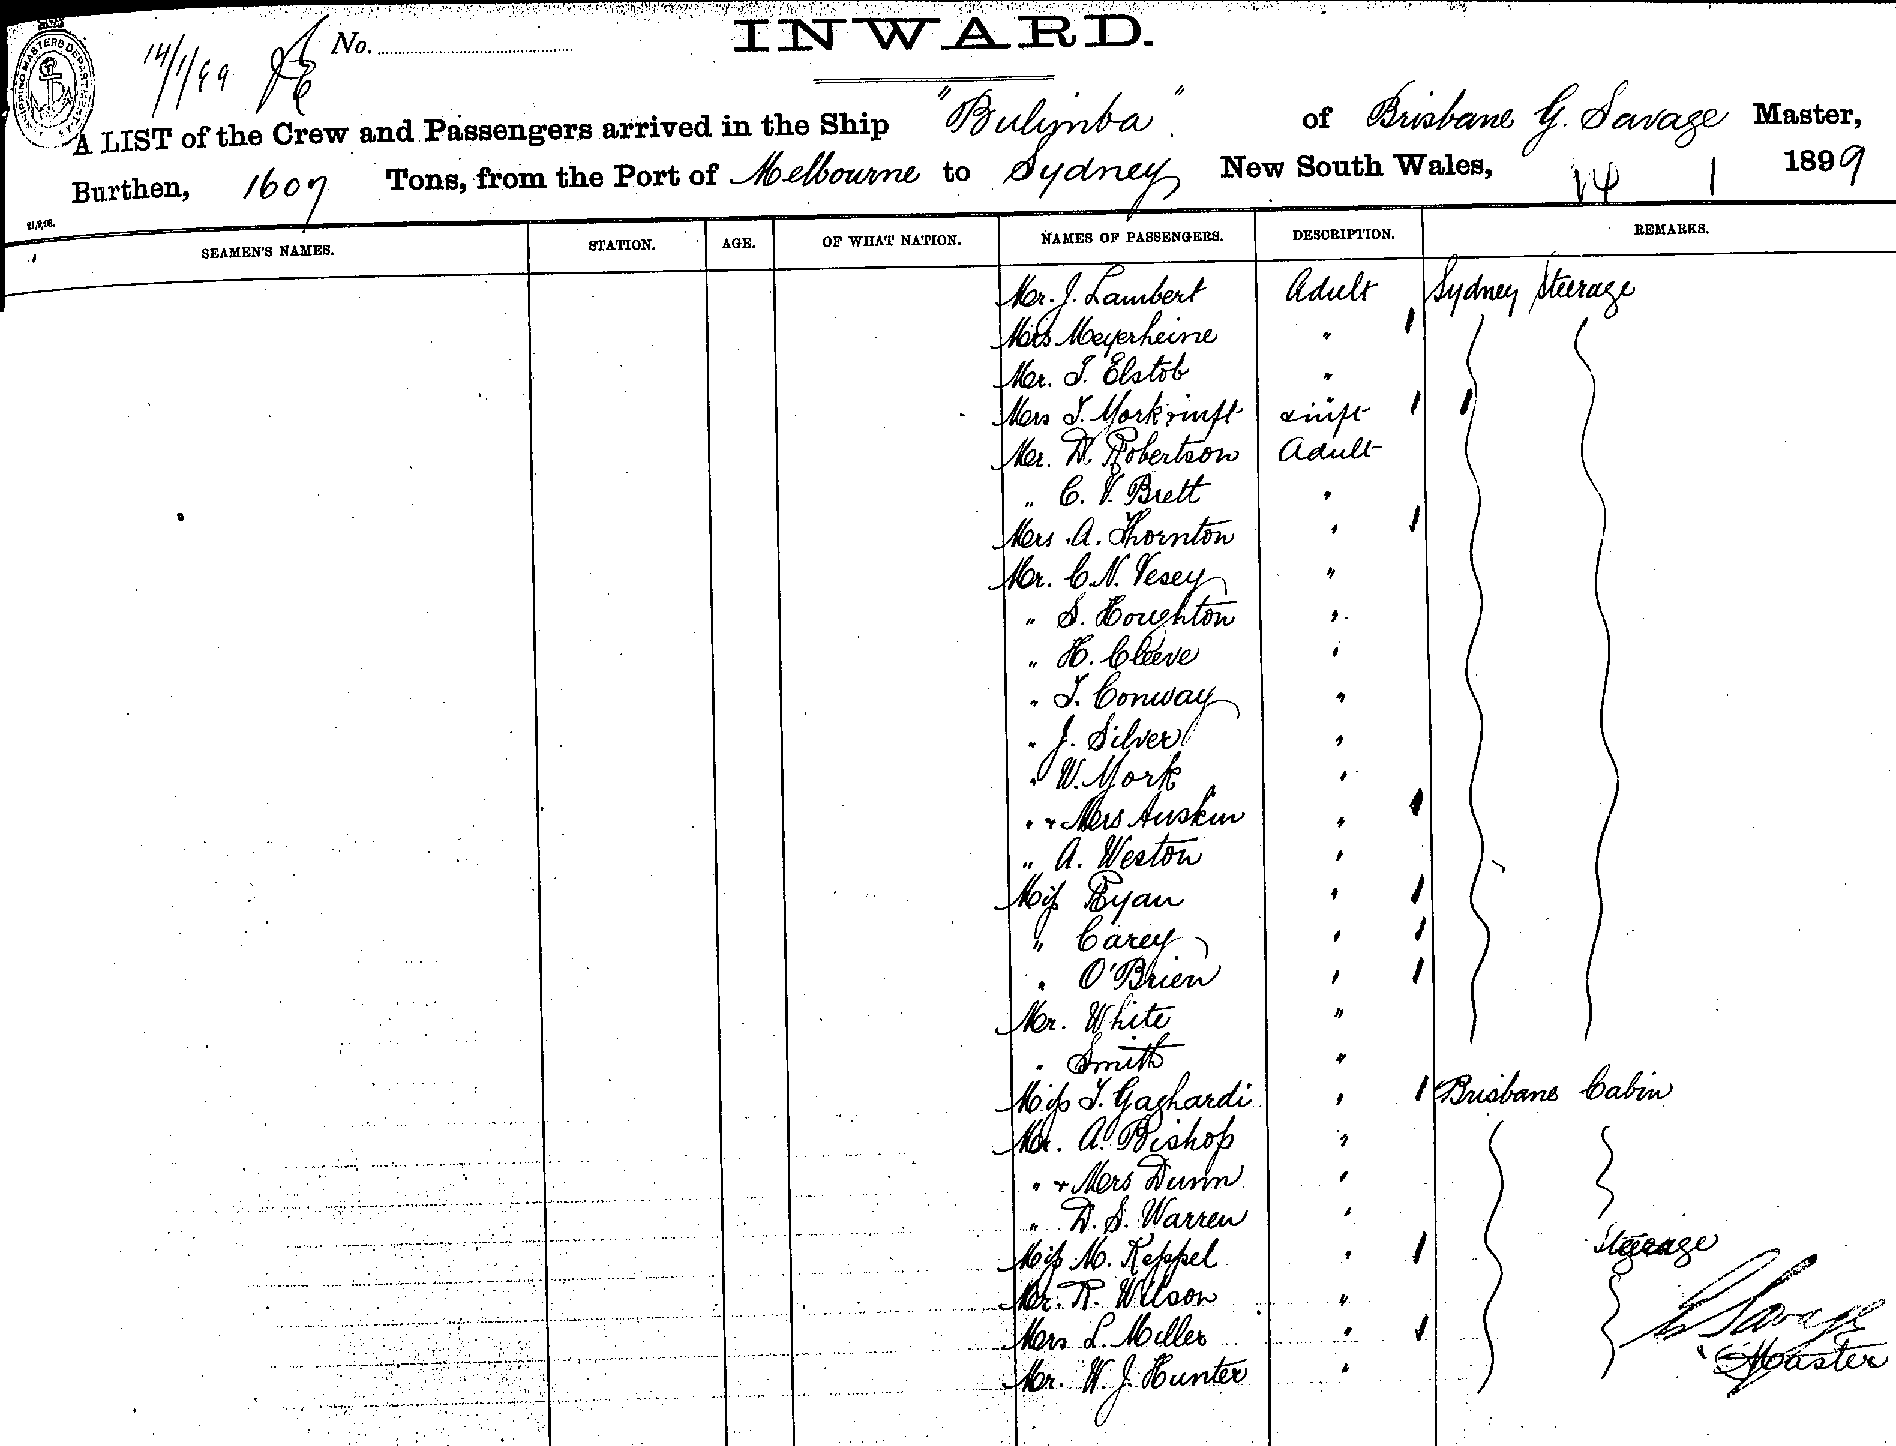 14/1/99 No.
INWARD.
A LIST of the Crew and Passengers arrived in the Ship "Bulimba" of Brisbane G. Savage Master,
Burthen, 1607 Tons, from the Port of Melbourne to Sydney New South Wales, 14 1 1899
SEAMEN'S NAMES. STATION. AGE. OF WHAT NATION. NAMES OF PASSENGERS. DESCRIPTION. REMARKS.
Mr. J. Lambert Adult Sydney Steerage
Mrs Meyerheine "
Mr. T. Elstob "
Mrs T. York & inft & inft
Mr. D. Robertson Adult
" C. V. Brett "
Mrs A. Thornton "
Mr. C. N. Vesey "
" S. Houghton "
" H. Cleeve "
" T. Conway "
" J. Silver "
" W. York "
" & Mrs Auskin "
" A. Weston "
Miss Ryan "
" Carey "
" O'Brien "
Mr. White "
" Smith "
Miss T. Gaghardi " Brisbane Cabin
Mr. A. Bishop "
" & Mrs Dunn "
" D. S. Warren "
Miss M. Keppel " Steerage
Mr. R. Wilson "
Mrs L. Miller "
Mr. W. J. Hunter "
G Savage
Master